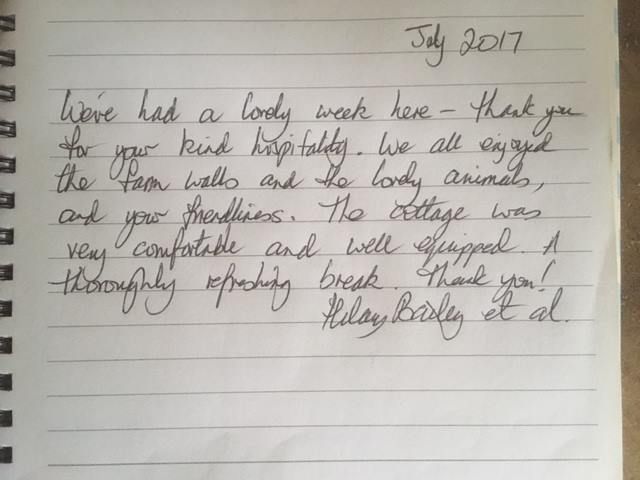 July 2017
We've had a lovely week here – thank you
for your kind hospitality. We all enjoyed
the farm walks and the lovely animals,
and your friendliness. The cottage was
very comfortable and well equipped. A
thoroughly refreshing break. Thank you!
Hilary Bailey et al.